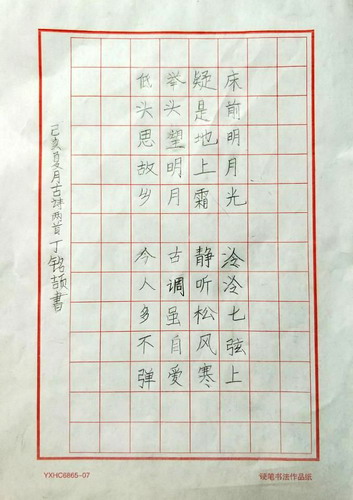 床前明月光
疑是地上霜
举头望明月
低头思故乡
泠泠七弦上
静听松风寒
古调虽自爱
今人多不弹
己亥夏月古诗两首丁铭颉書
YXHC6865-07
硬笔书法作品纸